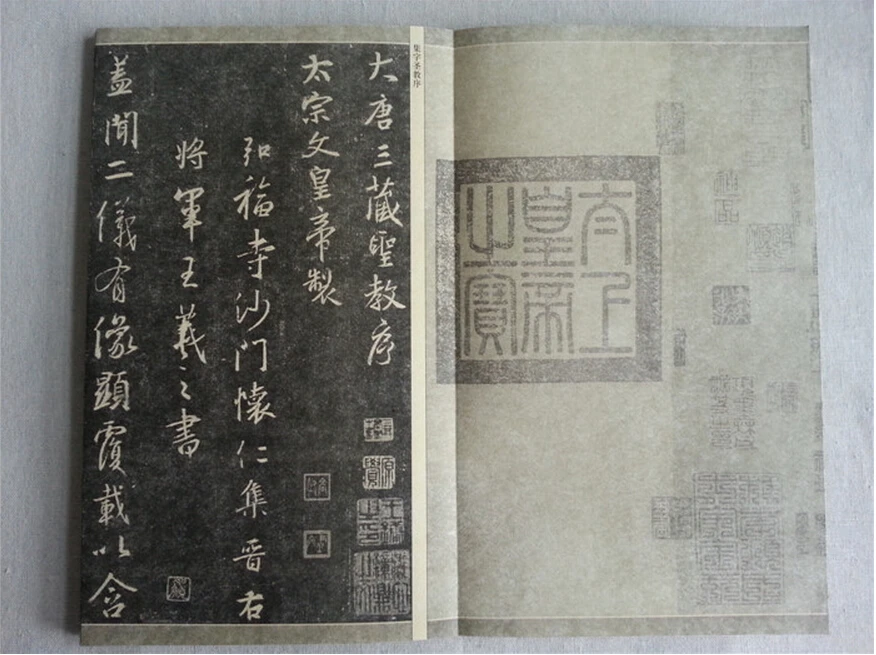 太上
皇帝
之寶
集字圣教序
大唐三藏聖教序
太宗文皇帝製
弘福寺沙門懷仁集晋右
將軍王羲之書
蓋聞二儀有像顯覆載以含